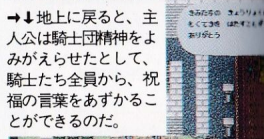 ➡⬇地上に戻ると、主
人公は騎士団精神をよ
みがえらせたとして、
騎士たち全員から、祝
福の言葉をあずかるこ
とができるのだ。
きみたちの きょうりょく
とくてきを はたすこと
ありがとう